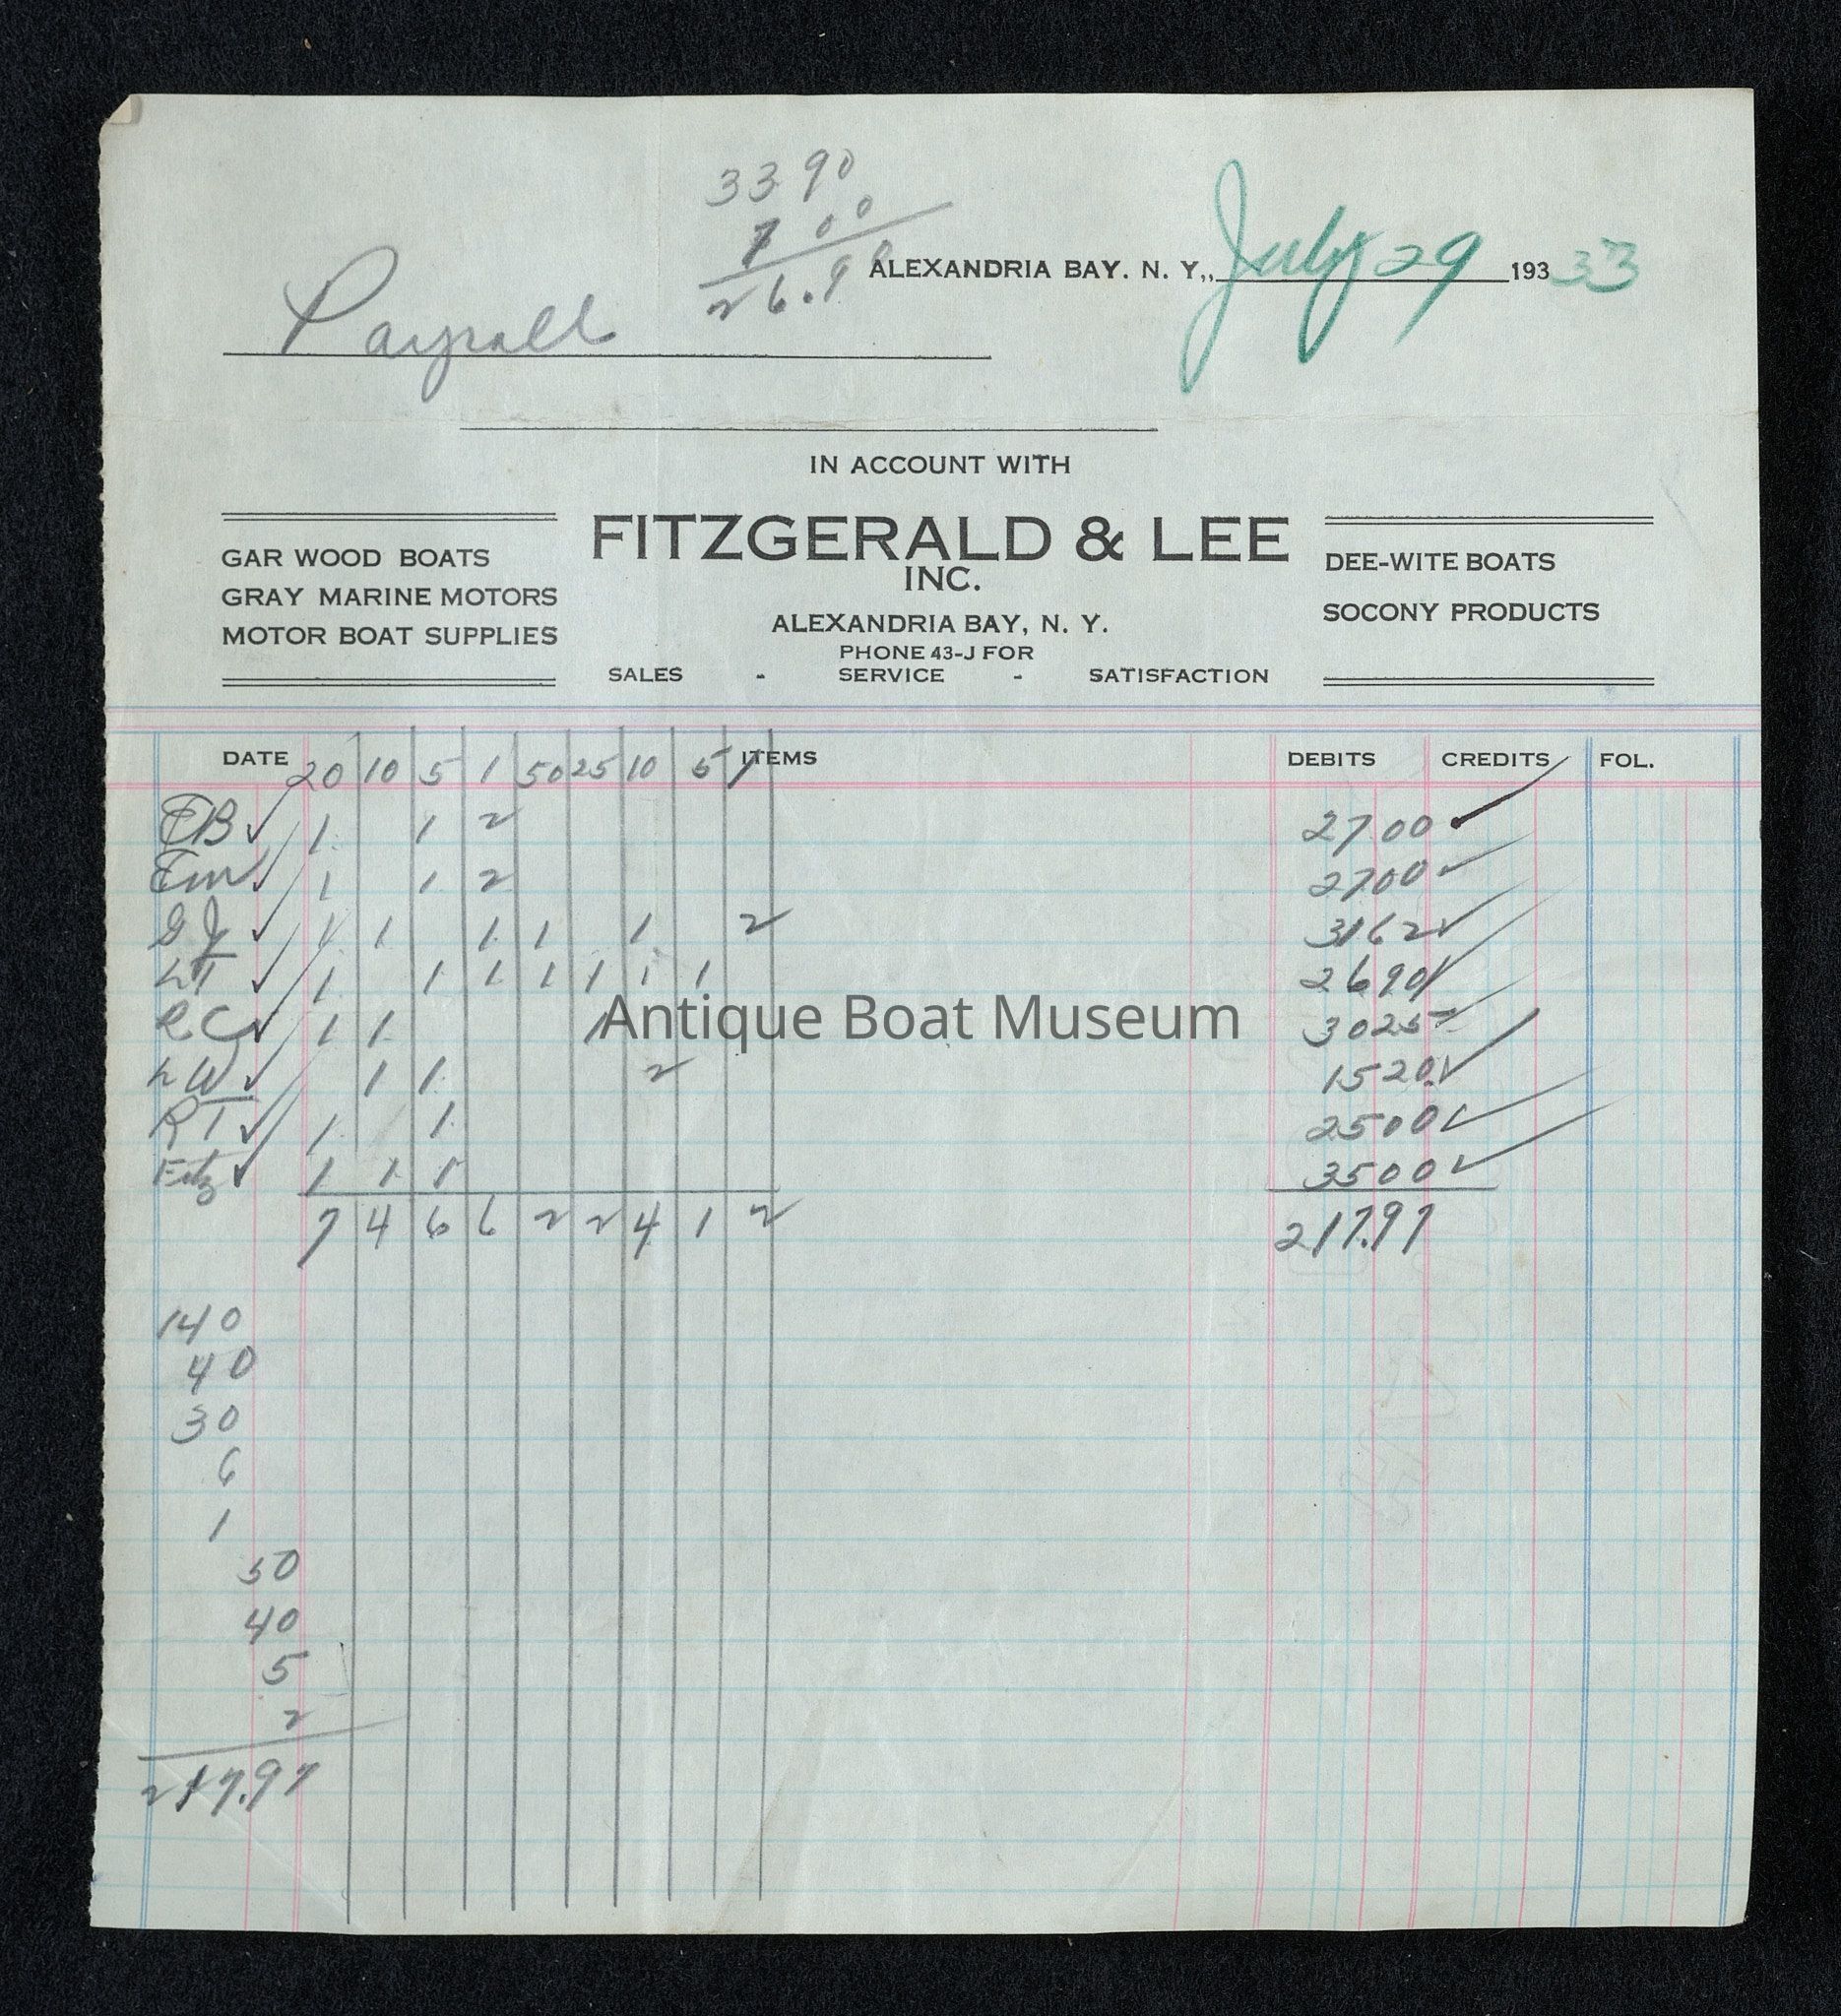 33 90
7 00
26.90
ALEXANDRIA BAY. N. Y., July 29 193 33
Payroll
IN ACCOUNT WITH
FITZGERALD & LEE
INC.
ALEXANDRIA BAY, N. Y.
PHONE 43-J FOR
SALES - SERVICE - SATISFACTION
GAR WOOD BOATS
GRAY MARINE MOTORS
MOTOR BOAT SUPPLIES
DEE-WITE BOATS
SOCONY PRODUCTS
DATE ITEMS DEBITS CREDITS FOL.
20 10 5 1 50 25 10 5 1
EB ✓ 1 1 2 27 00 ✓
Em ✓ 1 1 2 27 00 ✓
GJ ✓ 1 1 1 1 1 2 31 62 ✓
LT ✓ 1 1 1 1 1 1 1 26 90 ✓
RC ✓ 1 1 1 30 25 ✓
LW ✓ 1 1 2 15 20 ✓
RT ✓ 1 1 25 00 ✓
Fitz ✓ 1 1 1 35 00 ✓
7 4 6 6 2 2 4 1 2 217.97
140
40
30
6
1
50
40
5
2
217.97
Antique Boat Museum